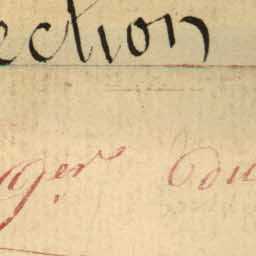 ection
ger. Cou